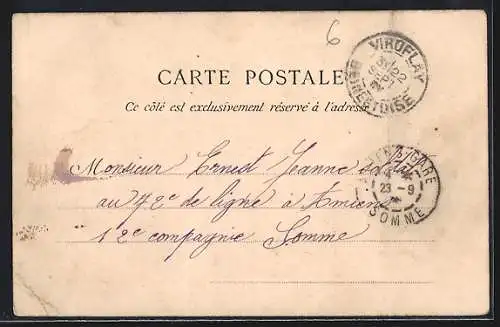 6
VIROFLAY
SEINE-ET-OISE
CARTE POSTALE
Ce côté est exclusivement réservé à l'adresse
Monsieur Ernest Jeanne soldat
au 72e de ligne à Amiens
12e compagnie Somme
GARE
23 - 9
SOMME